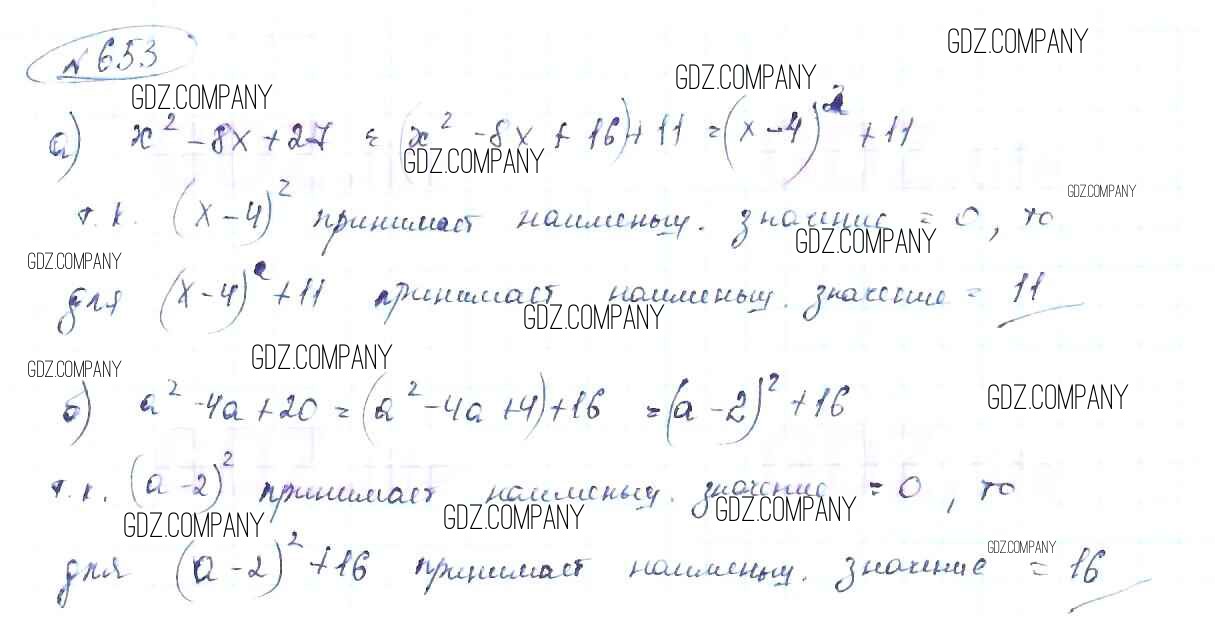 № 653
GDZ.COMPANY
GDZ.COMPANY
GDZ.COMPANY
а) x² - 8x + 27 = (x² - 8x + 16) + 11 = (x - 4)² + 11
GDZ.COMPANY
GDZ.COMPANY
т.к. (x - 4)² принимает наименьш. значение = 0, то
GDZ.COMPANY
GDZ.COMPANY
для (x - 4)² + 11 принимает наименьш. значение = 11
GDZ.COMPANY
GDZ.COMPANY
GDZ.COMPANY
GDZ.COMPANY
б) a² - 4a + 20 = (a² - 4a + 4) + 16 = (a - 2)² + 16
т.к. (a - 2)² принимает наименьш. значение = 0, то
GDZ.COMPANY
GDZ.COMPANY
GDZ.COMPANY
GDZ.COMPANY
для (a - 2)² + 16 принимает наименьш. значение = 16